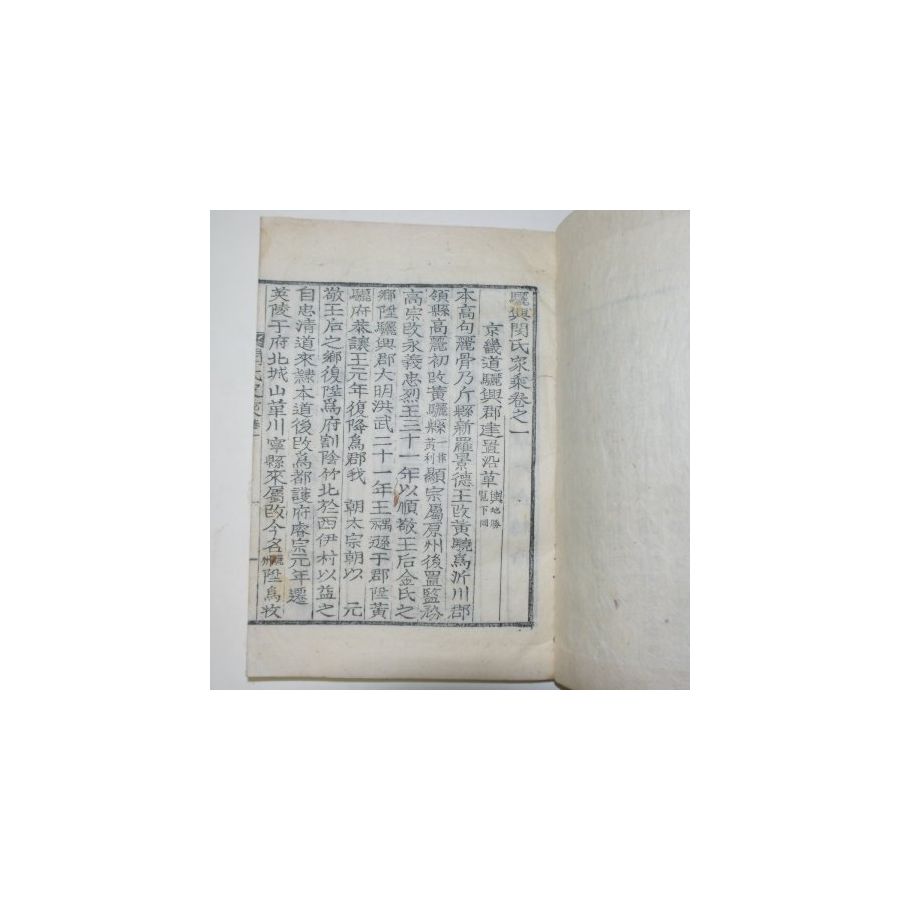 驪興閔氏家乘卷之一
京畿道驪興郡建置沿革輿地勝覽下同
本高句麗骨乃斤縣新羅景德王改黃驍爲沂川郡
領縣高麗初改黃驪縣一作黃利顯宗屬原州後置監務
高宗改永義忠烈王三十一年以順敬王后金氏之
鄉陞驪興郡大明洪武二十一年王禑遜于郡陞黃
驪府恭讓王元年復降爲郡我 朝太宗朝以 元
敬王后之鄉復陞爲府割陰竹北於西伊村以益之
自忠清道來隷本道後改爲都護府睿宗元年遷
英陵于府北城山革川寧縣來屬改今名驪州陞爲牧